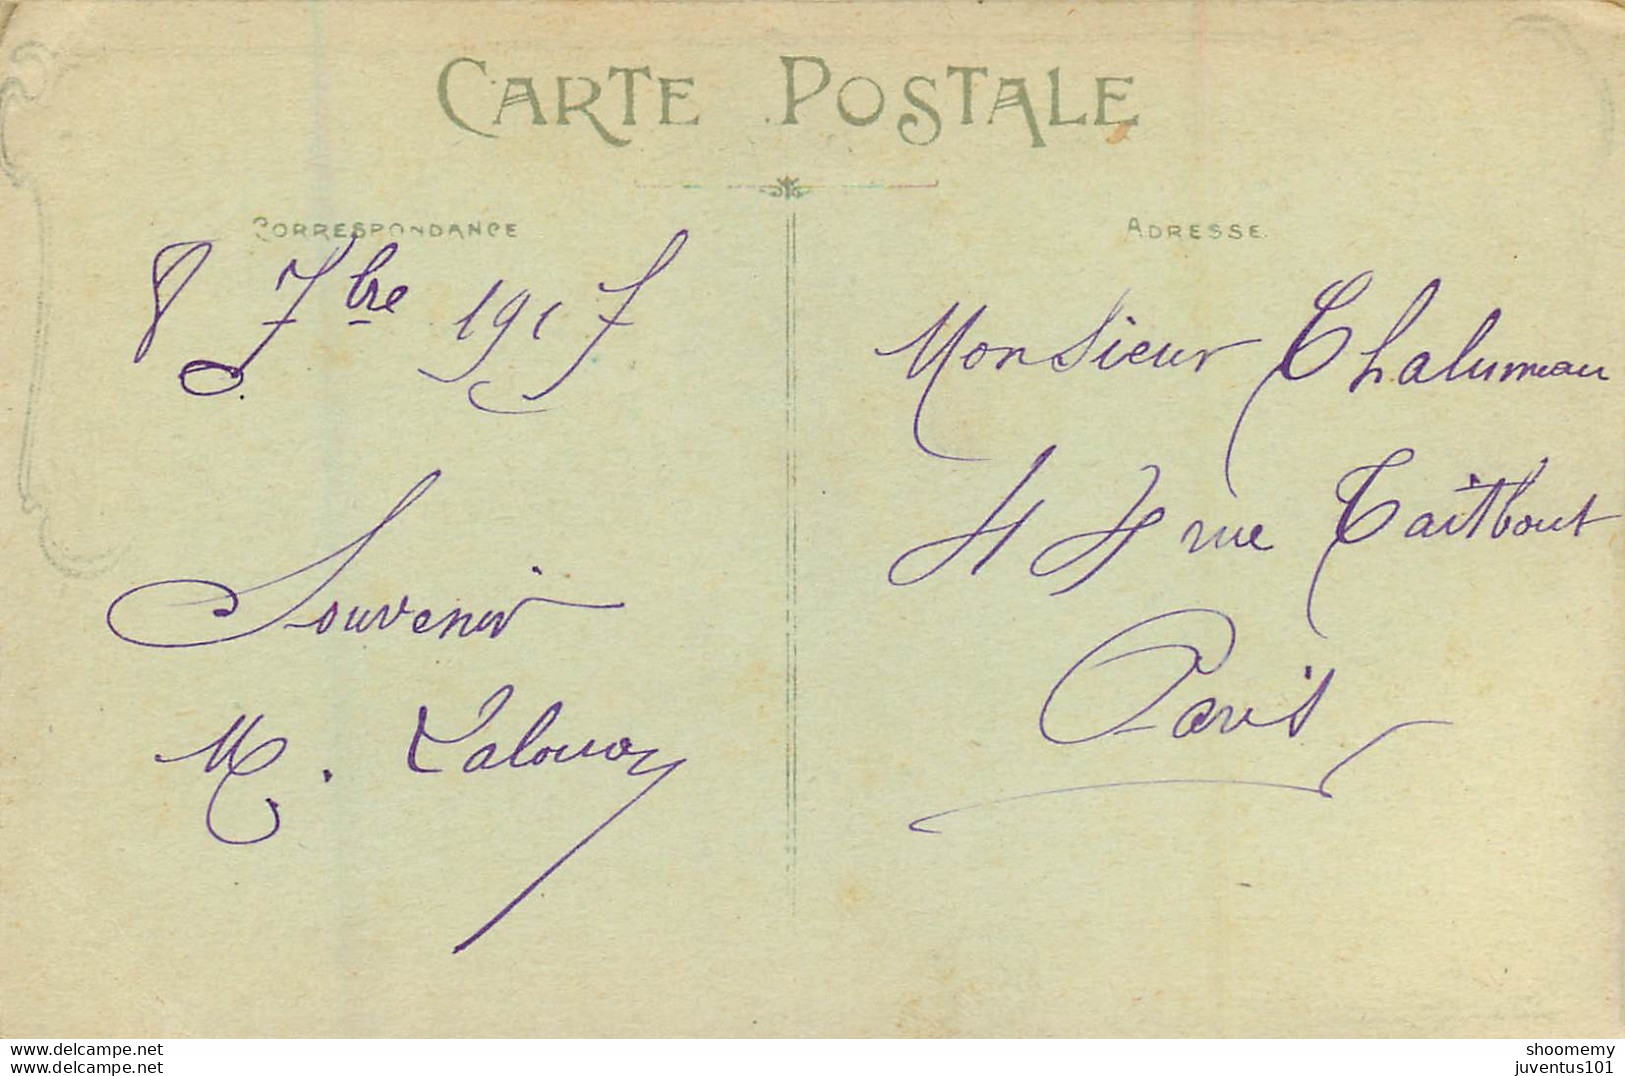 CARTE POSTALE
CORRESPONDANCE
8 7bre 1917
Souvenir
M.
ADRESSE
Monsieur Chalumeau
44 rue Taitbout
Paris
delcampe.net
juventus101
shoomemy
juventus101